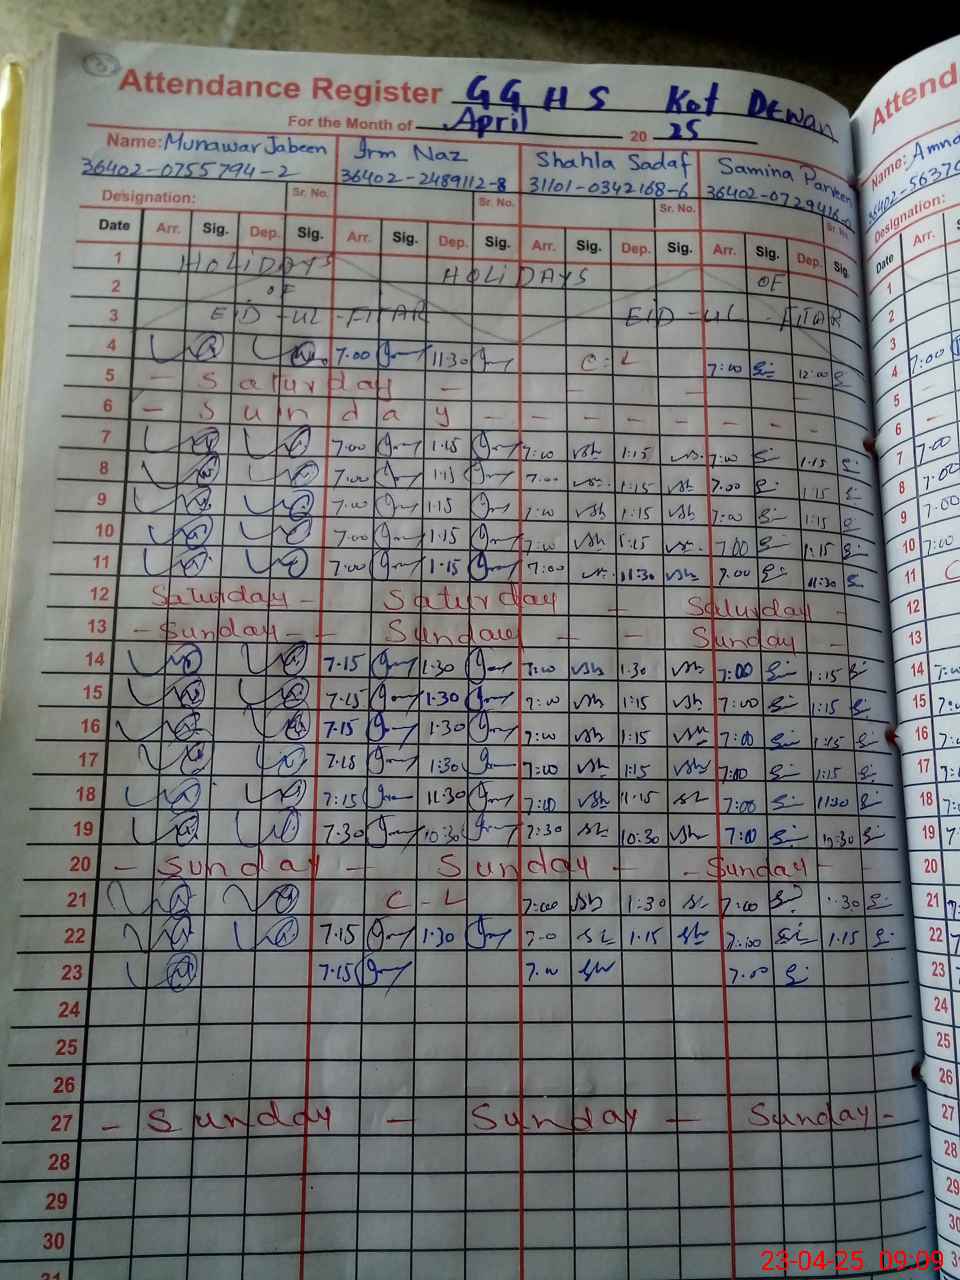 3
Attendance Register GGHS Kot DEWAN
For the Month of April 20 25
Name: Munawar Jabeen Irm Naz Shahla Sadaf Samina Parveen
36402-0755794-2 36402-2489112-8 31101-0342168-6 36402-0729416-
Designation: Sr. No. Sr. No. Sr. No. Sr. No.
Date Arr. Sig. Dep. Sig. Arr. Sig. Dep. Sig. Arr. Sig. Dep. Sig. Arr. Sig. Dep. Sig.
1 HOLiDAYS
2 OF HOLiDAYS OF
3 EiD -UL -FITAR EiD -UL -FITAR
4 7.00 11:30 C-L 7:00 12:00
5 - Saturday -
6 - Sunday - - - - - - - -
7 7.00 1.15 7:00 1:15 7:00 1.15
8 7.00 1.15 7.00 1:15 7.00 1:15
9 7.00 1.15 7:00 1:15 7:00 1:15
10 7.00 1.15 7:00 1:15 7.00 1:15
11 7:00 1.15 7:00 11:30 7.00 11:30
12 Saturday - Saturday - Saturday -
13 - Sunday - - Sunday - - Sunday -
14 7.15 1:30 7:00 1:30 7:00 1:15
15 7:15 1:30 7:00 1:15 7:00 1:15
16 7.15 1:30 7:00 1:15 7:00 1:15
17 7.15 1:30 7:00 1:15 7:00 1:15
18 7:15 11:30 7:00 11:15 7:00 11:30
19 7.30 10:30 7:30 10:30 7:00 10:30
20 - Sunday - Sunday - - Sunday -
21 C-L 7:00 1:30 7:00
22 7.15 1.30 7:00 1.15 7:00 1.15
23 7.15 7.00 7.00
24
25
26
27 - Sunday - Sunday - Sunday -
28
29
30
31
Attend
Name: Amna
36402-5637
Designation:
Date Arr.
1
2
3
4 7:00
5
6
7 7.00
8 7.00
9 7.00
10 7:00
11 C
12
13
14
15
16
17
18
19
20
21
22
23
24
25
26
27
28
29
30
23-04-25 09:09